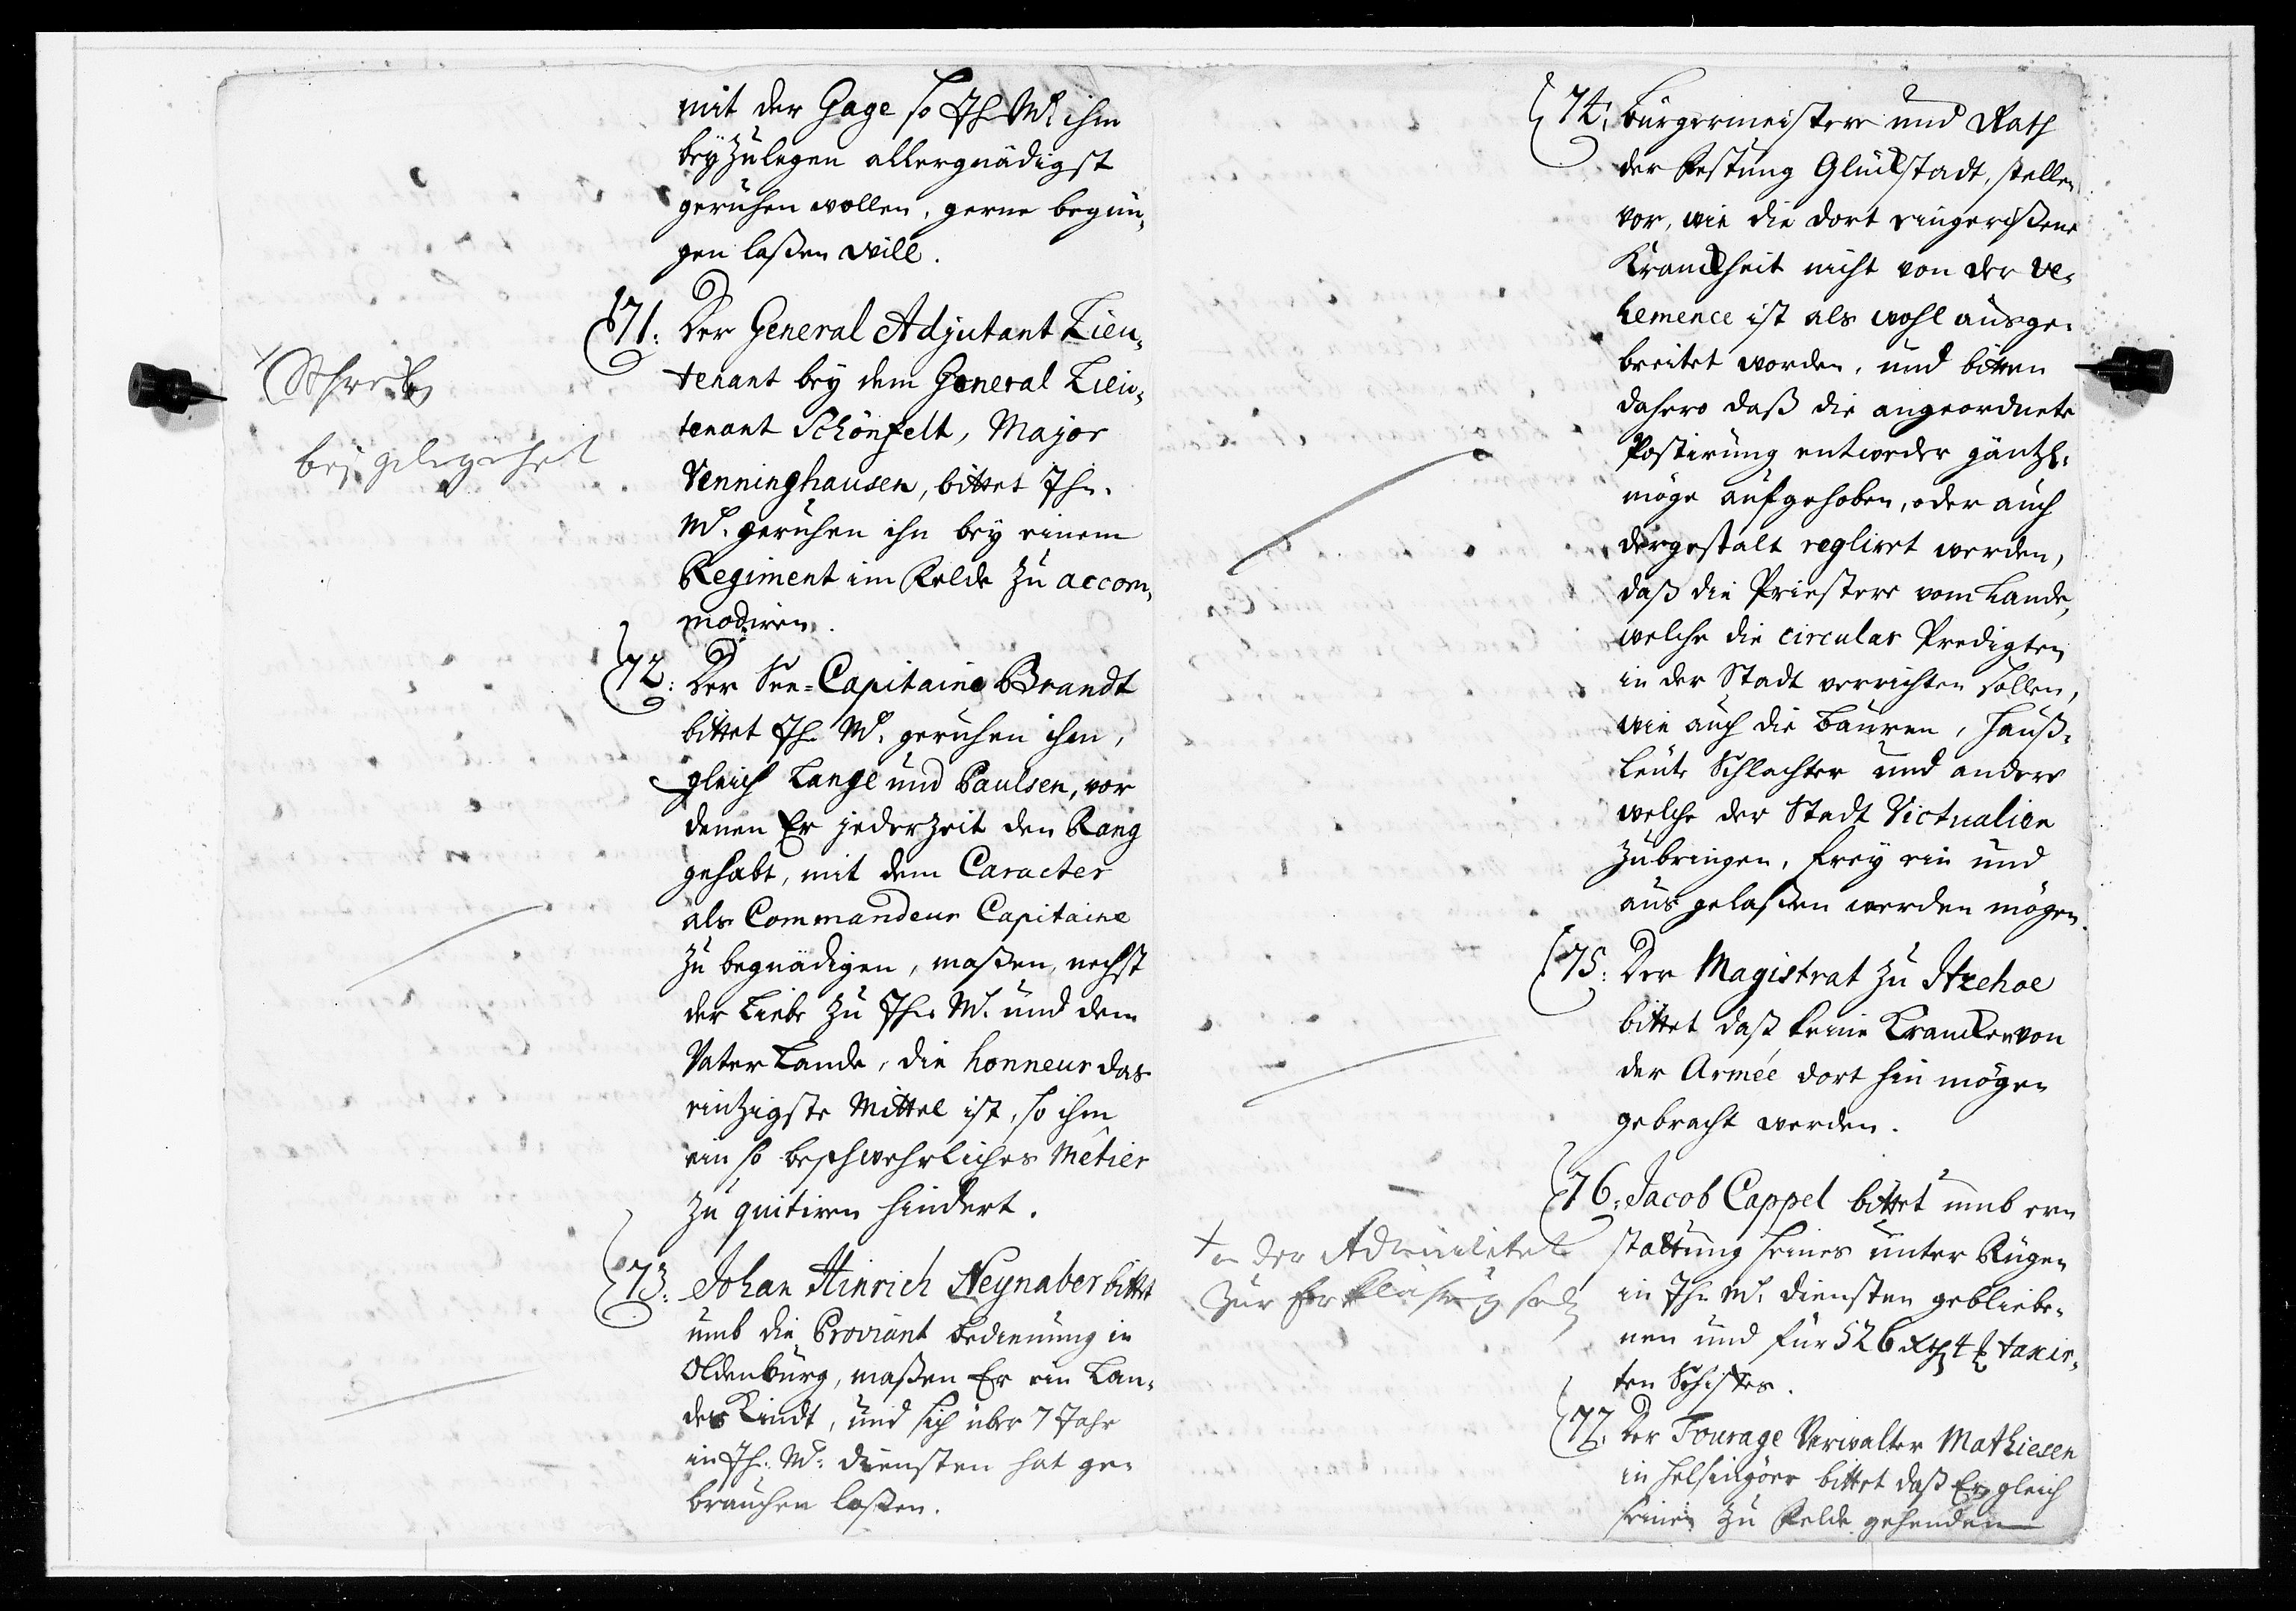 mit der Gage so Ih. M. ihm
beyzulegen allergnädigst
geruhen wollen, gerne begnü„
gen laßen will.
71. Der General Adjutant Lieu„
tenant bey dem General Lieu„
tenant Schönfelt, Major
Venninghausen, bittet Ihr.
M. geruhen ihn bey einem
Regiment im Felde zu accom„
modiren.
bej gelegenhet
72. Der See-Capitaine Brandt
bittet Ih. M. geruhen ihm,
gleich Lange und Paulsen, vor
denen Er jederzeit den Rang
gehabt, mit dem Caracter
als Commandeur Capitaine
zu begnädigen, maßen, nechst
der Liebe zu Ihr. M. und dem
Vaterlande, die honneur das
eintzigste Mittel ist, so ihm
ein so beschwehrliches Métier
zu quitiren hindert.
73. Johan Hinrich Neynaber bittet
umb die Proviant bedienung in
Oldenburg, maßen Er ein Lan„
des Kindt, und sich über 7 Jahr
in Ih. M. diensten hat ge„
brauchen laßen.
74. Bürgermeistere und Rath
der Festung Glückstadt, stellen
vor, wie die dort eingerißene
Kranckheit nicht von der ve„
hemence ist als wohl ausge„
breitet worden, und bitten
dahero daß die angeordnete
Postirung entweder gäntzl.
möge aufgehoben, oder auch
dergestalt reglirt werden,
daß die Priestere vom Lande,
welche die circular Predigten
in der Stadt verrichten sollen,
wie auch die Bauren, Hauß„
leute Schlachter und andere
welche der Stadt Victualien
zubringen, frey ein und
aus gelaßen werden mögen.
75. Der Magistrat zu Itzehoe
bittet daß keine Krancken von
der Armée dort hin mögen
gebracht werden.
76. Jacob Cappel bittet umb er„
stattung seines unter Rügen
in Ih. M. diensten gebliebe„
nen und für 526 Rth 4 ß taxir„
ten Schiffes.
+ an der Admiralitet
zur Erklährung
77. Der Fourage Verwalter Mathiesen
in Helsingöer bittet daß Er gleich
seinen zu Felde gehenden